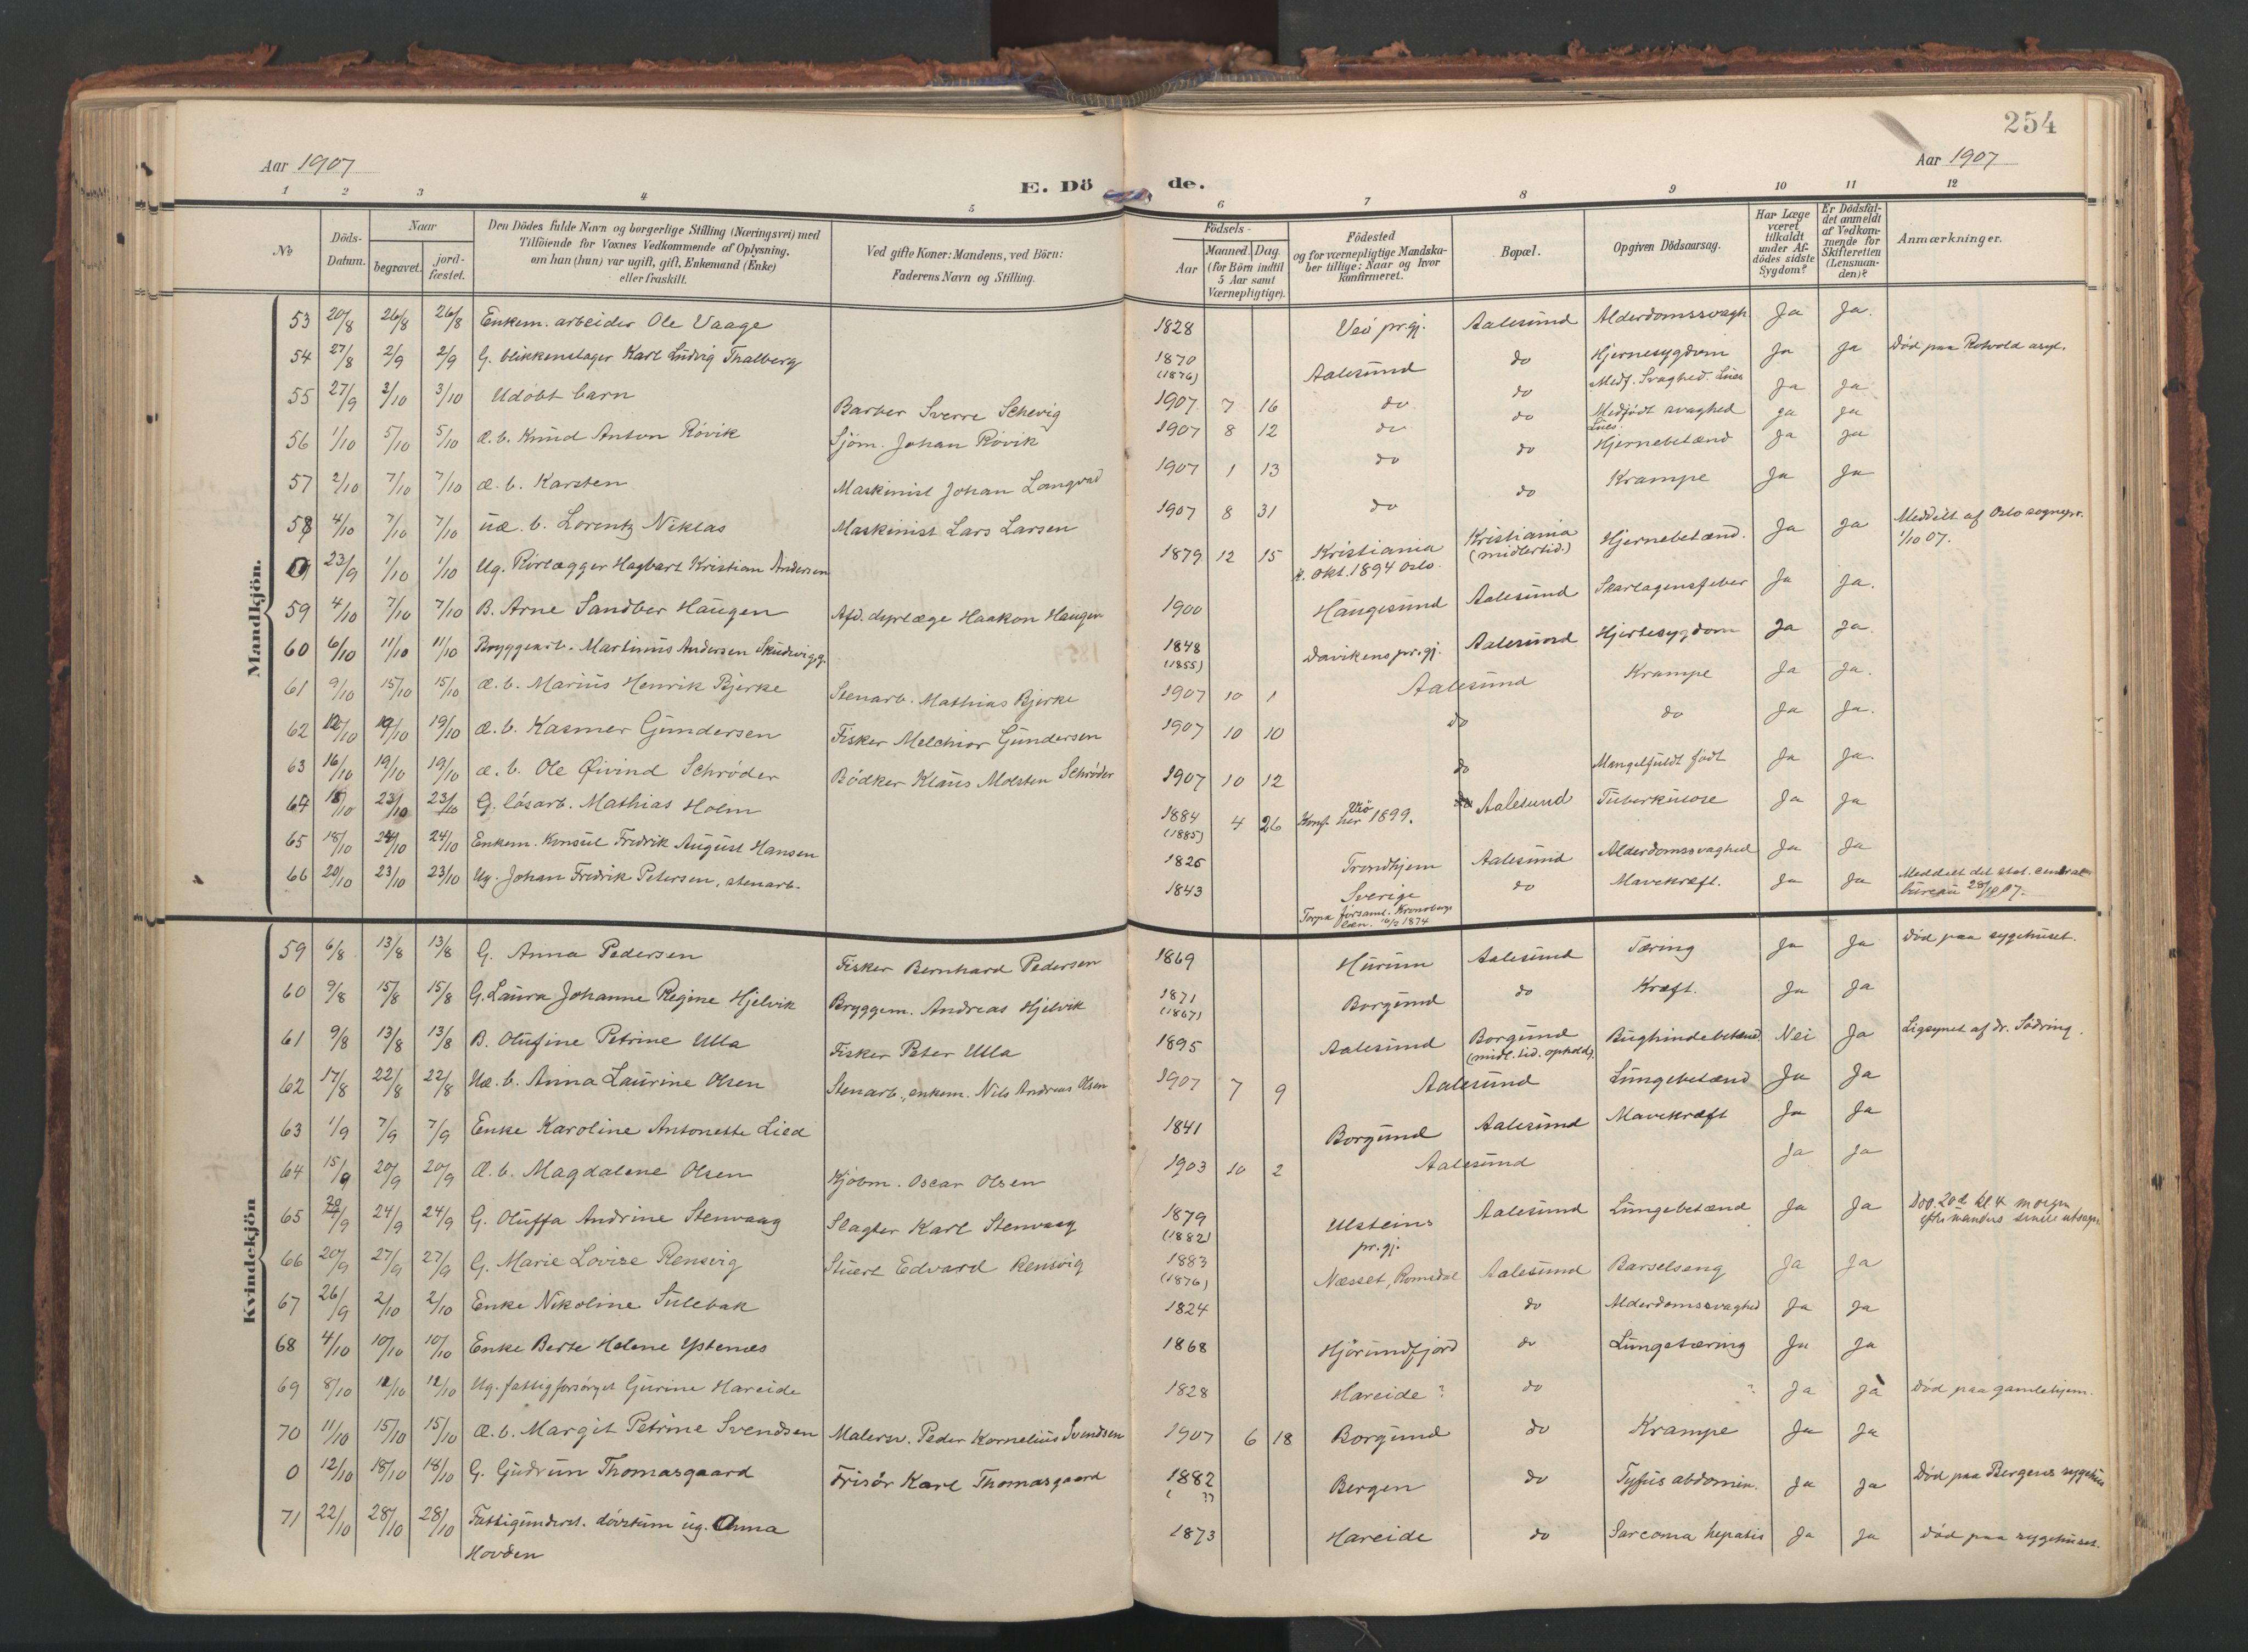 254
Aar 1907
Aar 1907
E. Dö de.
1 2 3 4 5 6 7 8 9 10 11 12
No
Döds-Datum.
Naar
begravet.
jord-fæstet.
Den Dödes fulde Navn og borgerlige Stilling (Næringsvei) med
Tilföiende for Voxnes Vedkommende af Oplysning,
om han (hun) var ugift, gift, Enkemand (Enke)
eller fraskilt.
Ved gifte Koner: Mandens, ved Börn:
Faderens Navn og Stilling.
Födsels-
Aar
Maaned. Dag.
(for Börn indtil
5 Aar samt
Værnepligtige).
Födested
og for værnepligtige Mandska-
ber tillige: Naar og hvor
konfirmeret.
Bopæl.
Opgiven Dödsaarsag.
Har Læge
været
tilkaldt
under Af-
dödes sidste
Sygdom?
Er Dödsfal-
det anmeldt
af Vedkom-
mende for
Skifteretten
(Lensman-
den)?
Anmærkninger.
Mandkjön.
53 20/8 26/8 26/8 Enkem. arbeider Ole Vaage 1828 Veö pr.gj. Aalesund Alderdomssvagh Ja Ja.
54 27/8 2/9 2/9 G. blikkenslager Karl Ludvig Thalberg 1870 (1876) Aalesund do Hjernesygdom Ja Ja Död paa Rotvold asyl.
55 27/9 3/10 3/10 Udöbt barn Barber Sverre Schevig 1907 7 16 do do Medf. Svaghed. Lues Ja Ja
56 1/10 5/10 5/10 Æ. b. Knud Anton Rövik Sjöm. Johan Rövik 1907 8 12 do do Medfödt svaghed Lues. Ja Ja
57 2/10 7/10 7/10 Æ. b. Karsten Maskinist Johan Langvad 1907 1 13 do do Hjernebetænd Ja Ja
58 4/10 7/10 7/10 uæ. b. Lorentz Niklas Maskinist Lars Larsen 1907 8 31 do do Krampe Ja Ja
0 23/9 1/10 1/10 Ug. Rörlægger Hagbart Kristian Andersen 1879 12 15 Kristiania k. Okt. 1894 Oslo. Kristiania (midlertid.) Hjernebetænd. Ja Ja Meddelt af Oslo sognepr. 1/10 07.
59 4/10 7/10 7/10 B. Arne Sandber Haugen Afd. dyrlæge Haakon Haugen 1900 Haugesund Aalesund Skarlagensfeber Ja Ja.
60 6/10 11/10 11/10 Bryggearb. Martinus Andersen Skudvigg. 1848 (1855) Davikens pr.gj. Aalesund Hjertesygdom Ja Ja.
61 9/10 15/10 15/10 Æ. b. Marius Henrik Bjerke Stenarb. Mathias Bjerke 1907 10 1 Aalesund Krampe Ja Ja.
62 12/10 19/10 19/10 Æ. b. Kasmer Gundersen Fisker Melchior Gundersen 1907 10 10 do do Ja Ja.
63 16/10 19/10 19/10 Æ. b. Ole Øivind Schrøder Bödker Klaus Molsten Schröder 1907 10 12 do Mangelfuldt födt Ja Ja.
64 18/10 23/10 23/10 G. lösarb. Mathias Holm 1884 (1885) 4 26 Veö Konf. her 1899. Aalesund Tuberkulose Ja Ja
65 18/10 24/10 24/10 Enkem. Konsul Fredrik August Hansen 1826 Trondhjem Aalesund Alderdomssvaghed Ja Ja
66 20/10 23/10 23/10 Ug. Johan Fredrik Petersen, stenarb. 1843 Sverige Torpa församl. Kronobergs län. 1874 do Mavekræft. Ja Ja Meddelt det stat. central bureau 28/10 07.
Kvindekjön
59 6/8 13/8 13/8 G. Anna Pedersen Fisker Bernhard Pedersen 1869 Hurum Aalesund Tæring Ja Ja Död paa sygehuset.
60 9/8 15/8 15/8 G. Laura Johanne Regine Hjelvik Bryggem. Andreas Hjelvik 1871 (1867) Borgund do Kræft. Ja Ja
61 9/8 13/8 13/8 B. Olufine Petrine Ulla Fisker Peter Ulla 1895 Aalesund Borgund (midl.tid. ophold). Bughindebetænd. Nei Ja Ligsynet af dr. Södring.
62 17/8 22/8 22/8 Uæ. b. Anna Laurine Olsen Stenarb., enkem. Nils Andreas Olsen 1907 7 9 Aalesund Lungebetænd Ja Ja
63 1/9 7/9 7/9 Enke Karoline Antonette Lied 1841 Borgund Aalesund Mavekræft Ja Ja
64 15/9 20/9 20/9 Æ. b. Magdalene Olsen Kjöbm. Oscar Olsen 1903 10 2 Aalesund Ja Ja
65 20/9 24/9 24/9 G. Oluffa Andrine Stenvaag Slagter Karl Stenvaag 1879 (1882) Ulsteins pr.gj. Aalesund Lungebetænd Ja Ja Död. 20d. kl. 4 morgen efter mandens senere utsagn
66 20/9 27/9 27/9 G. Marie Lovise Rensvig Stuert Edvard Rensvig 1883 (1876) Næsset, Romsdal Aalesund Barselseng Ja Ja
67 26/9 2/10 2/10 Enke Nikoline Sulebak 1824 do Alderdomssvaghed Ja Ja
68 4/10 10/10 10/10 Enke Berte Helene Ystenes 1868 Hjörundfjord do Lungetæring Ja Ja
69 8/10 12/10 12/10 Ug. fattigforsörget Gjurine Hareide 1828 Hareide ? do ? Ja Ja Död paa gamlehjem.
70 11/10 15/10 15/10 Æ. b. Margit Petrine Svendsen Malersv. Peder Kornelius Svendsen 1907 6 18 Borgund do Krampe Ja Ja
0 12/10 18/10 18/10 G. Gudrun Thomasgaard Frisör Karl Thomasgaard 1882 ( ?) Bergen do Tyfus abdomin. Ja Ja Död paa Bergens sygehus
71 22/10 28/10 28/10 Fattigunderst. dövstum ug. Anna Hovden 1873 Hareide do Sarcoma hepatis Ja Ja Död paa sygehuset.